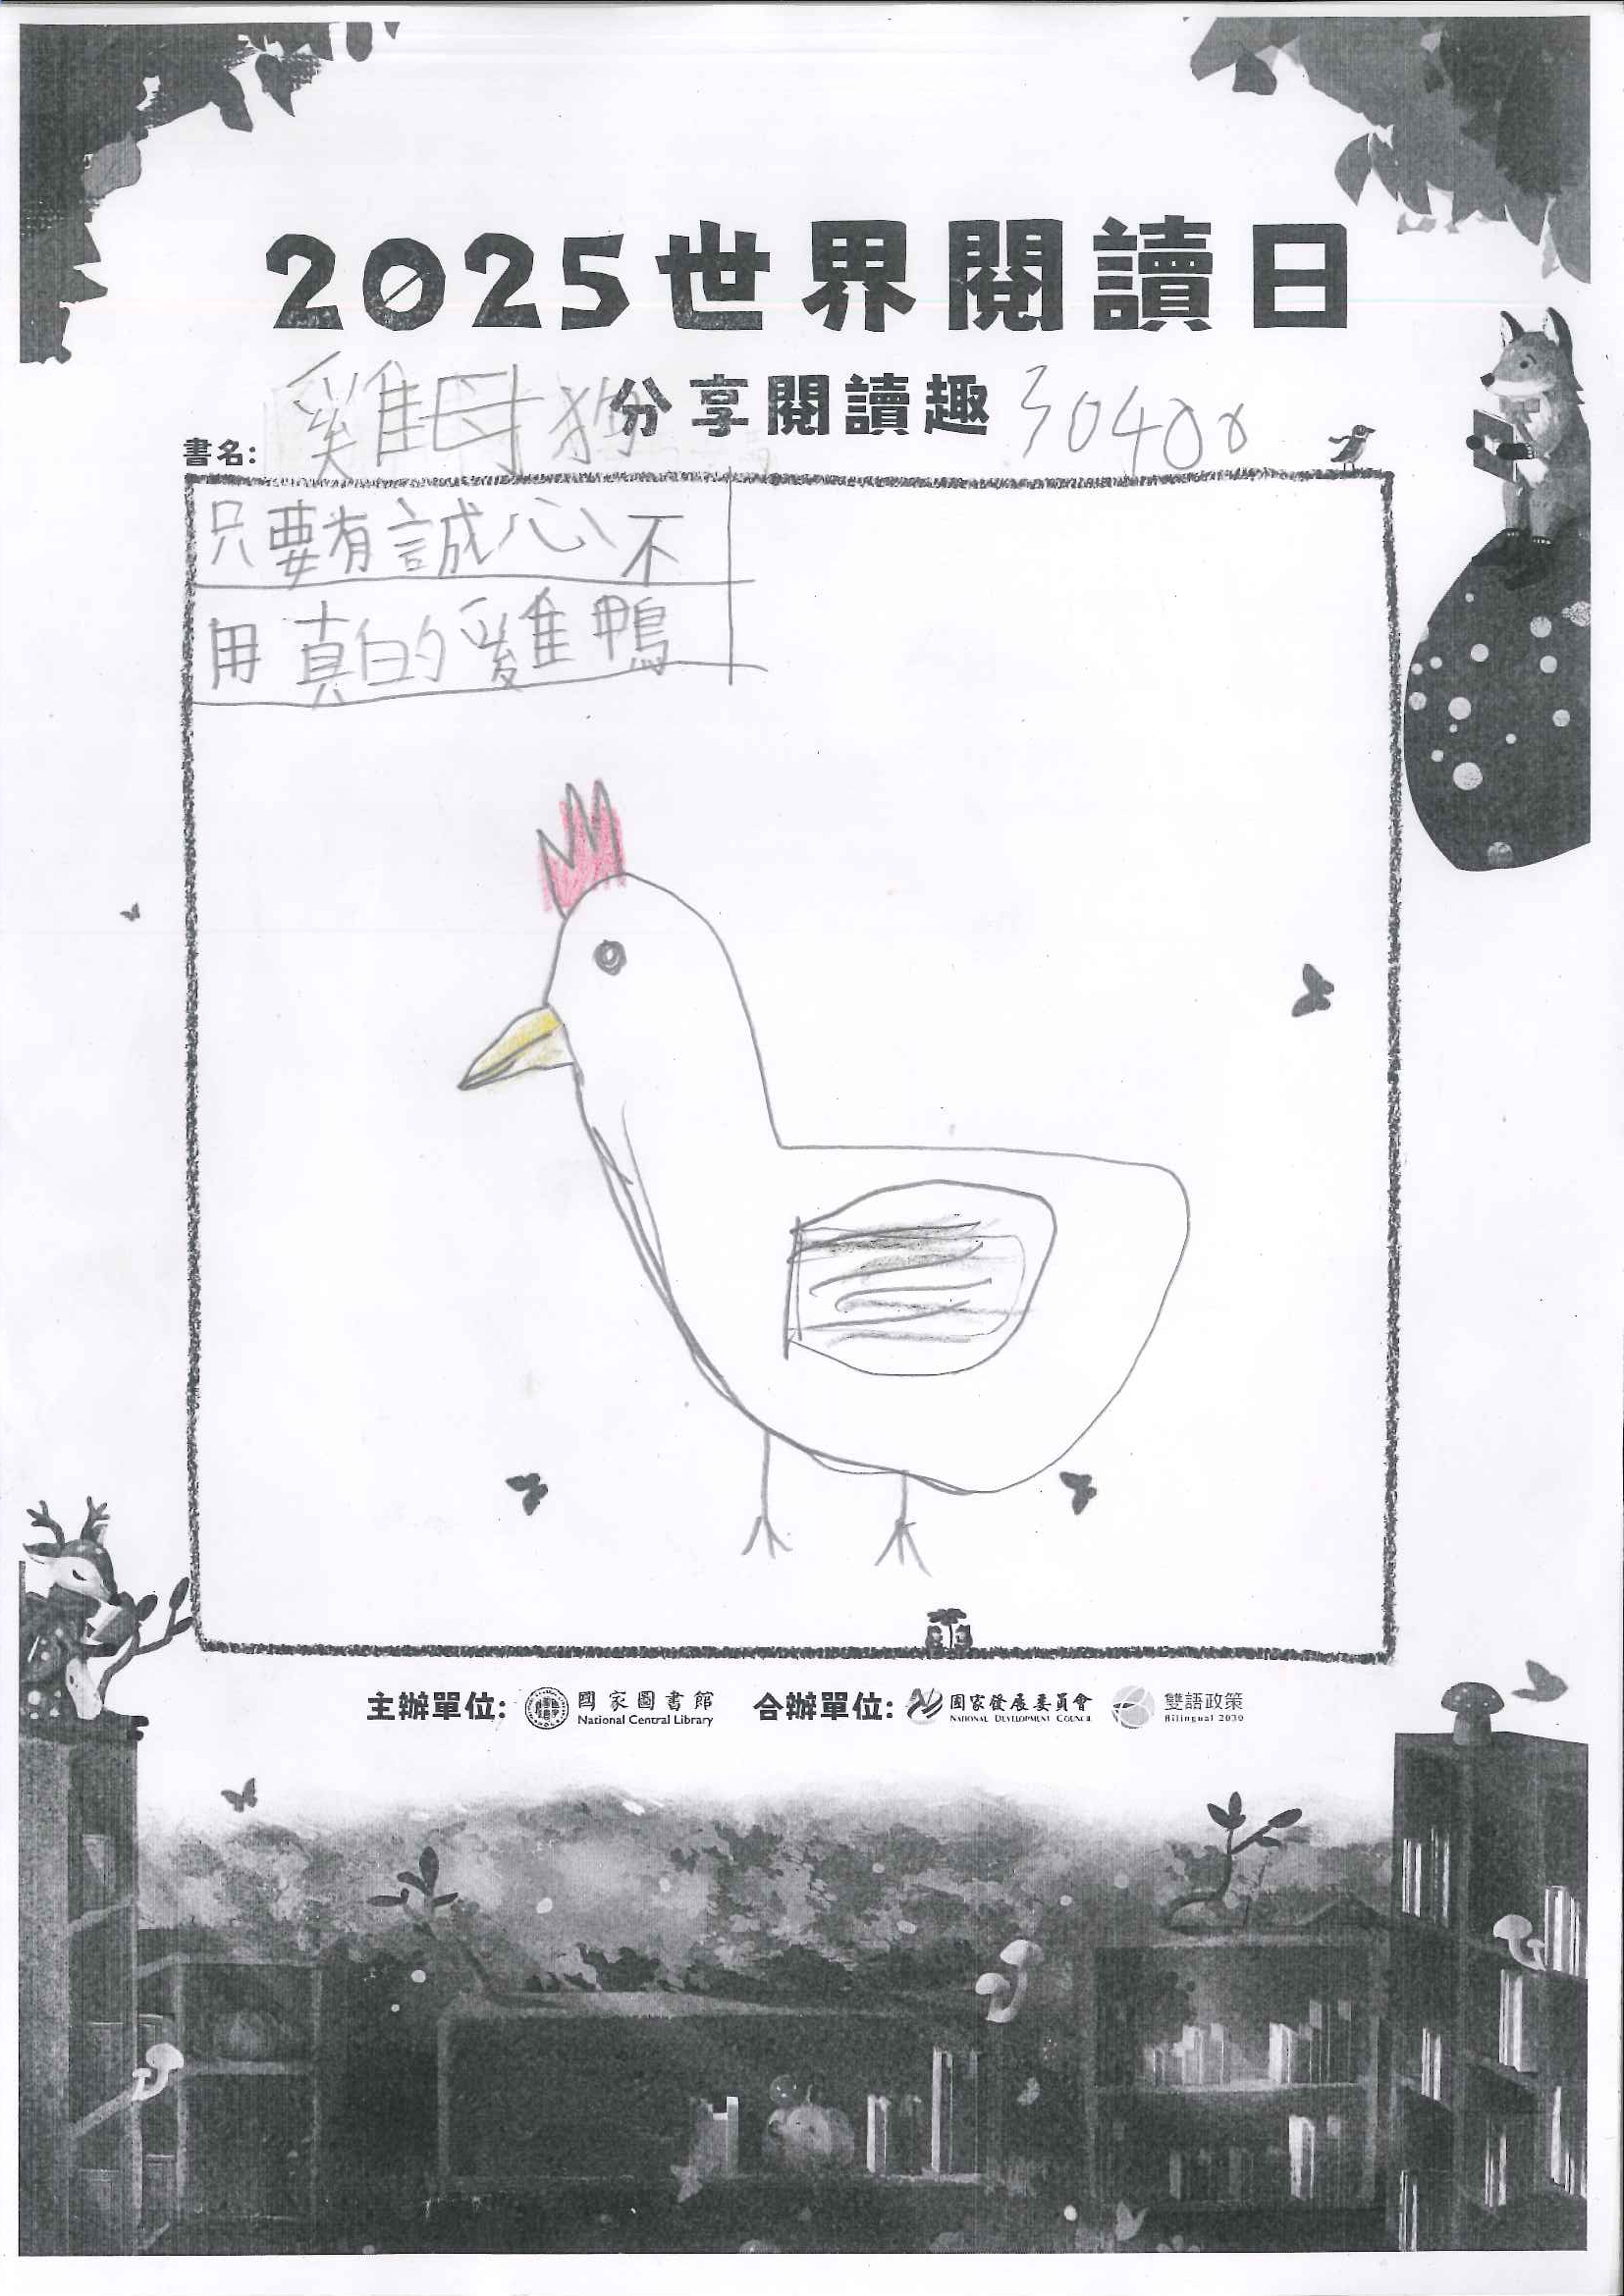 2025世界閱讀日
分享閱讀趣
書名: 雞母狗 30400
只要有誠心、不
用真的雞鴨
主辦單位: 國家圖書館 National Central Library 合辦單位: 國家發展委員會 NATIONAL DEVELOPMENT COUNCIL 雙語政策 Bilingual 2030